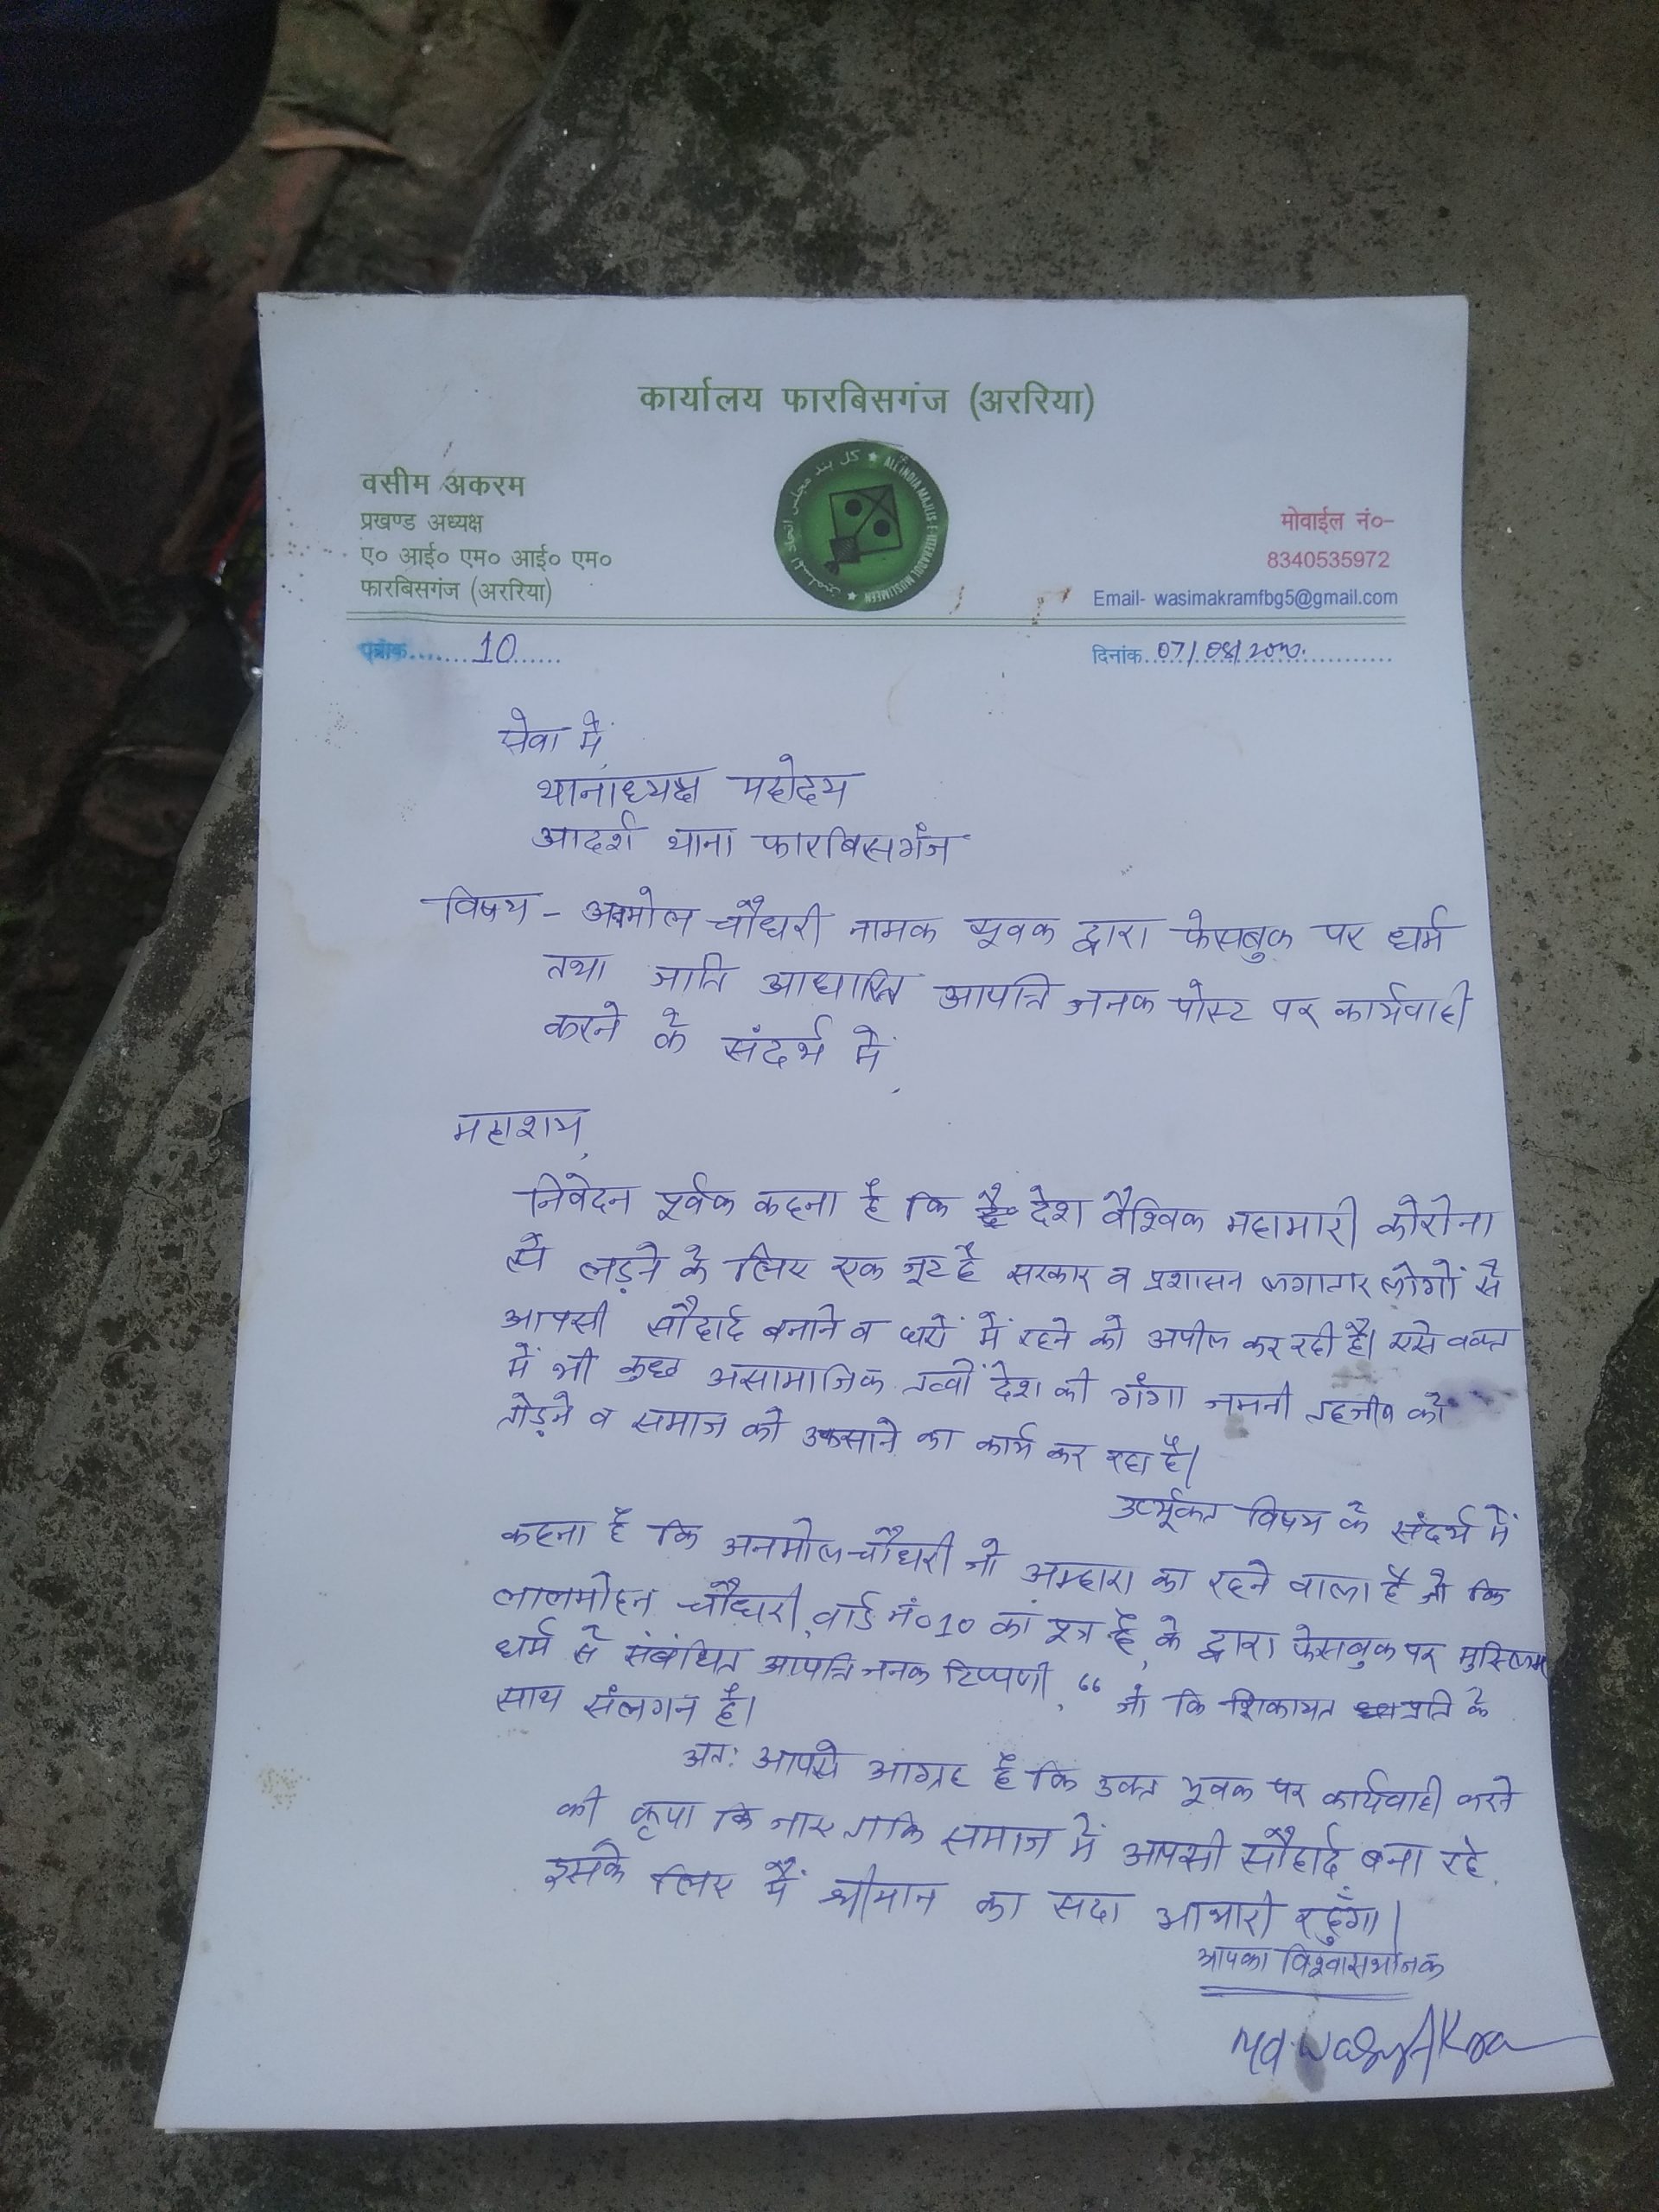 कार्यालय फारबिसगंज (अररिया)
वसीम अकरम
प्रखण्ड अध्यक्ष
ए० आई० एम० आई० एम०
फारबिसगंज (अररिया)
کل ہند مجلس اتحاد المسلمین ★ ALL INDIA MAJLIS-E-ITTEHADUL MUSLIMEEN ★
मोवाईल नं०-
8340535972
Email- wasimakramfbg5@gmail.com
पत्रांक........10......
दिनांक..07/08/2020.
सेवा में,
थानाध्यक्ष महोदय
आदर्श थाना फारबिसगंज
विषय - अनमोल चौधरी नामक यूवक द्वारा फेसबुक पर धर्म
तथा जाति आधारित आपत्ति जनक पोस्ट पर कार्यवाही
करने के संदर्भ में,
महाशय,
निवेदन पूर्वक कहना है कि देश वैश्विक महामारी कोरोना
से लड़ने के लिए एक जूट है सरकार व प्रशासन लगातार लोगों से
आपसी सौहार्द बनाने व घरों में रहने को अपील कर रही है। एसे वक्त
में भी कुछ असामाजिक तत्वों देश की गंगा जमनी तहजीब को
तोड़ने व समाज को उकसाने का कार्य कर रहा है।
उर्प्यूक्त विषय के संदर्भ में
कहना है कि अनमोल चौधरी जो अम्हारा का रहने वाला है जो कि
लालमोहन चौधरी, वार्ड नं०10 का पुत्र है, के द्वारा फेसबुक पर मुस्लिम
धर्म से संबंधित आपत्ति जनक टिप्पणी, “ जो कि शिकायत प्रति के
साथ संलगन है।
अत: आपसे आग्रह है कि उक्त यूवक पर कार्यवाही करने
की कृपा कि जाए ताकि समाज में आपसी सौहार्द बना रहे.
इसके लिए मैं श्रीमान का सदा आभारी रहुँगा।
आपका विश्वासभाजक
Md Wasim Akram